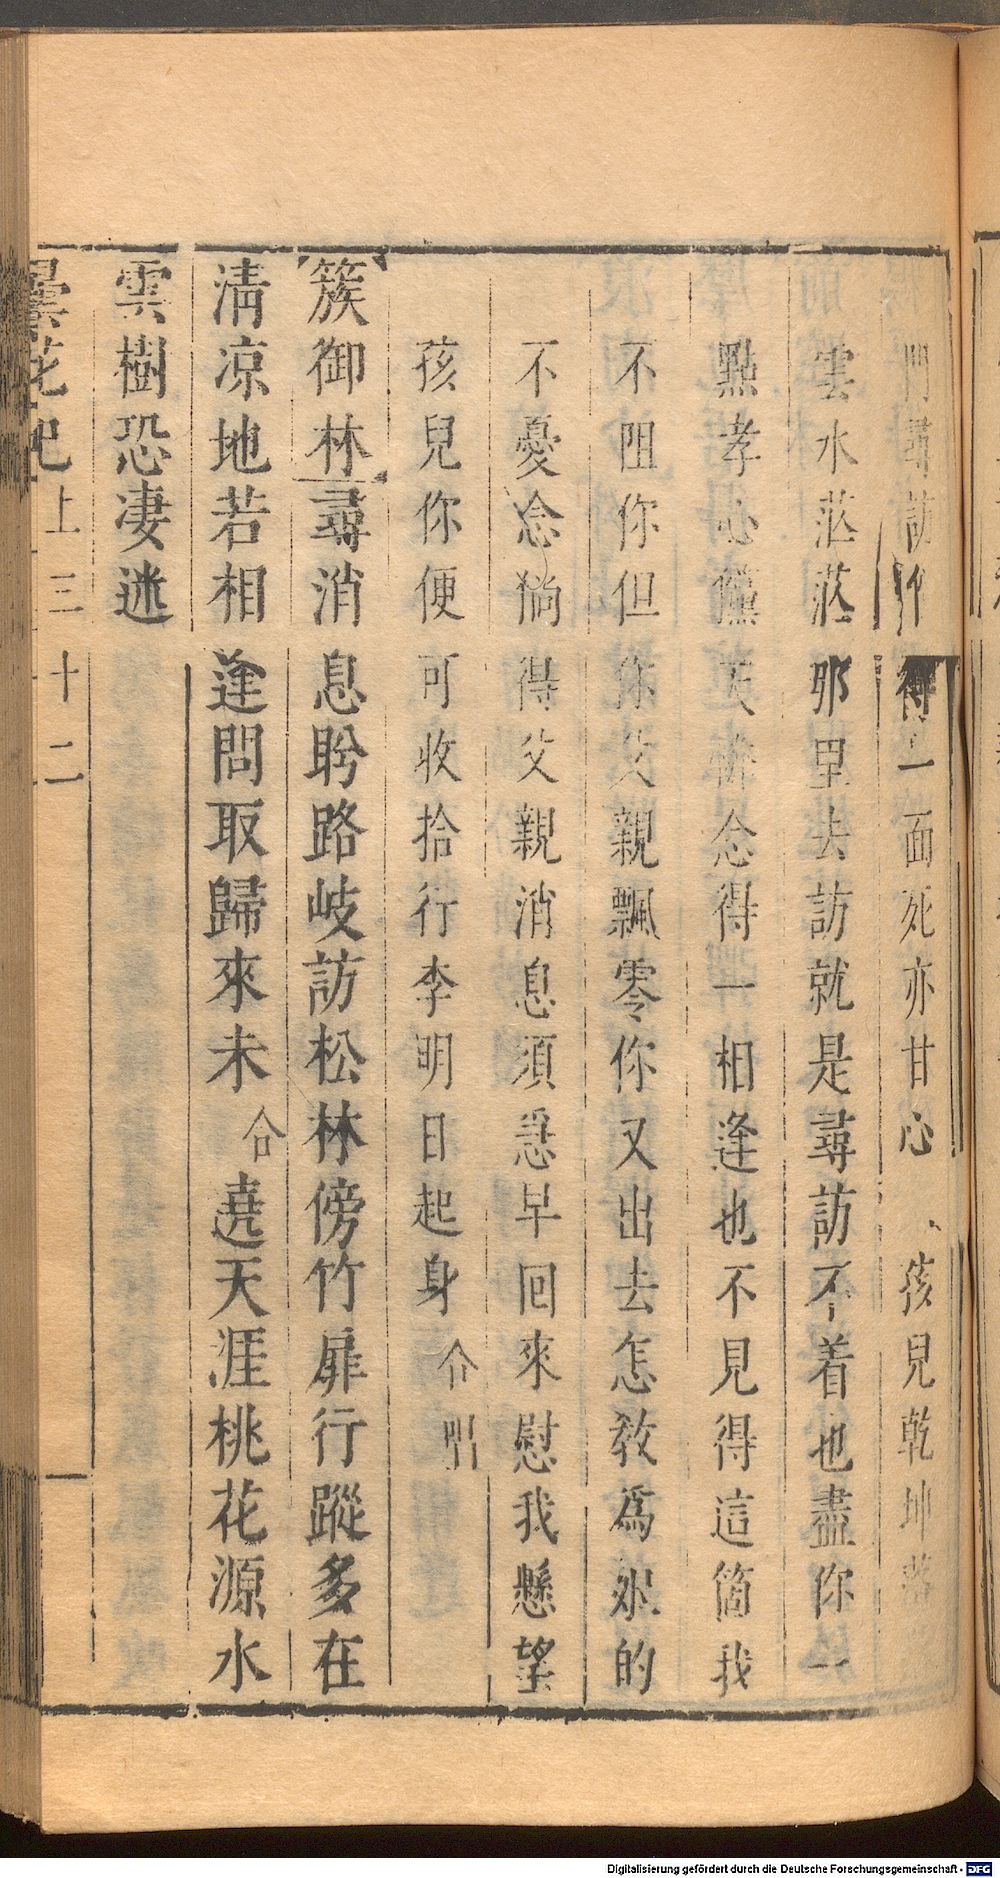 門尋訪作得一面死亦甘心　孩兒乾坤落
雲水茫茫那里去訪就是尋訪不着也盡你一
點孝心儻天憐念得一相逢也不見得這箇我
不阻你但你父親飄零你又出去怎教爲娘的
不憂念倘得父親消息須急早回來慰我懸望
孩兒你便可收拾行李明日起身介唱
簇御林尋消息盻路岐訪松林傍竹扉行蹤多在
清凉地若相逢問取歸來未合遶天涯桃花源水
雲樹恐凄迷
曇花記上三十二
Digitalisierung gefördert durch die Deutsche Forschungsgemeinschaft - DFG